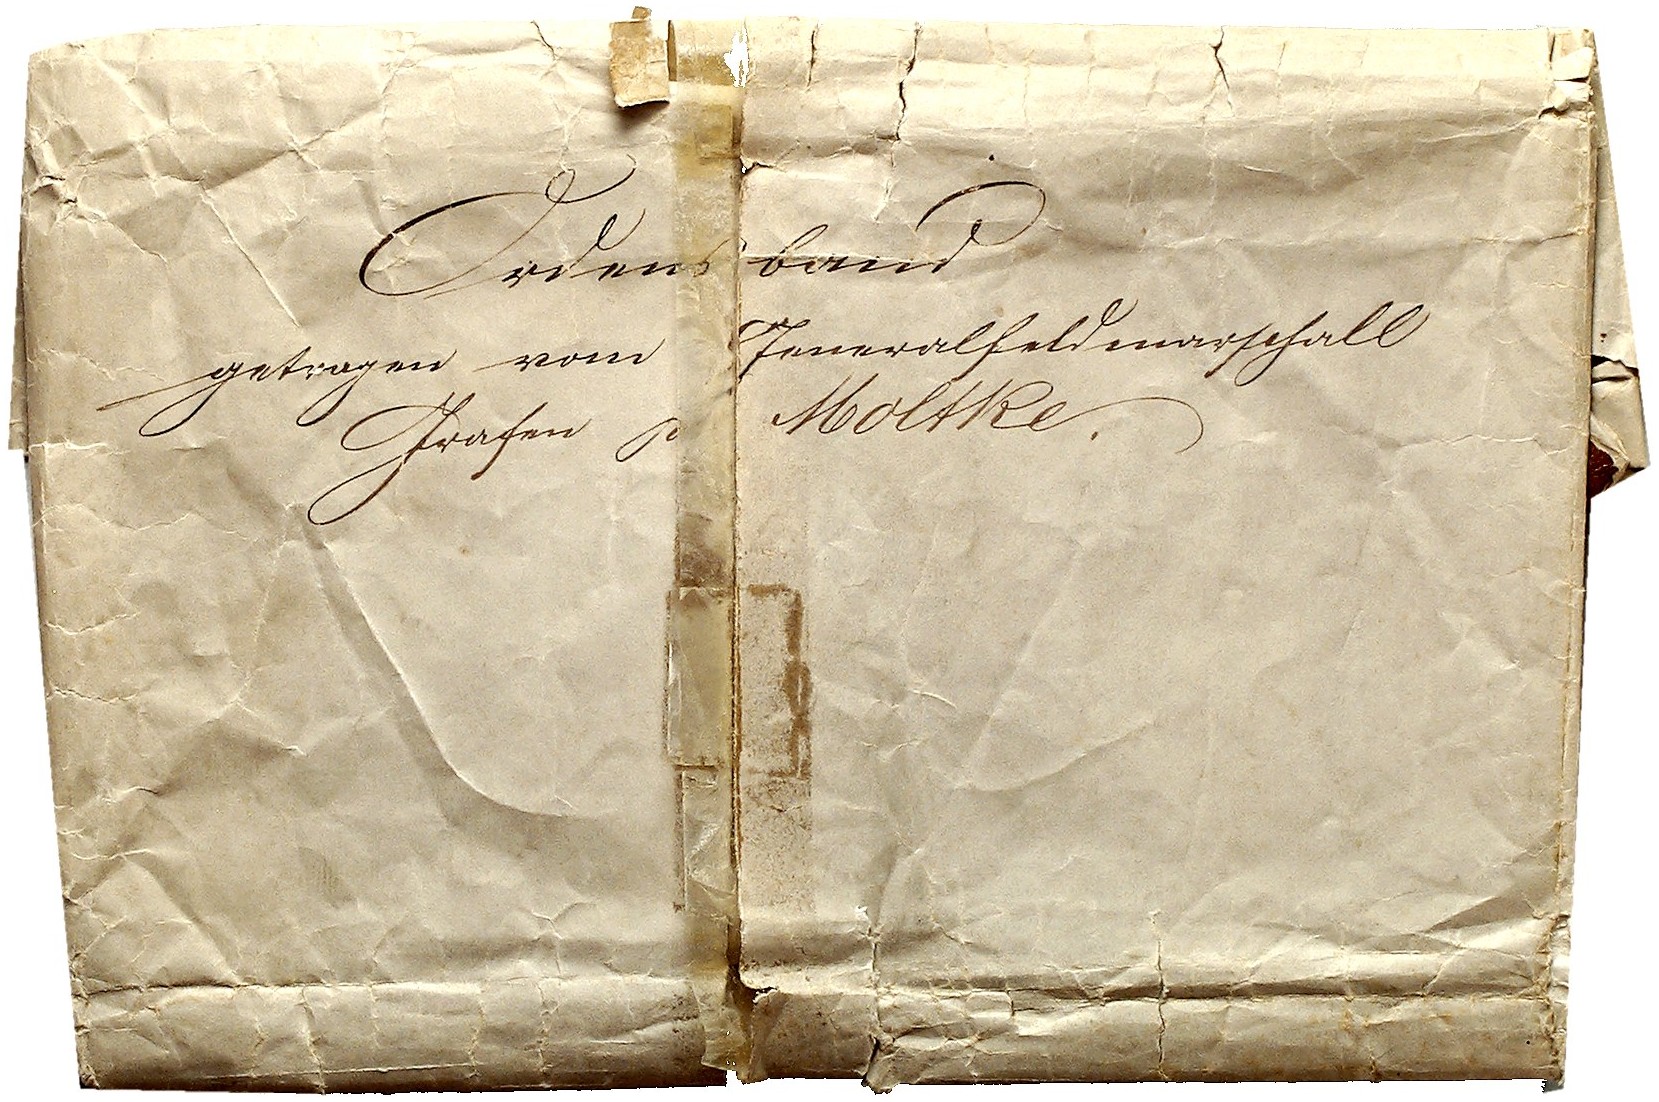 Ordensband
getragen vom Generalfeldmarschall
Grafen v. Moltke.